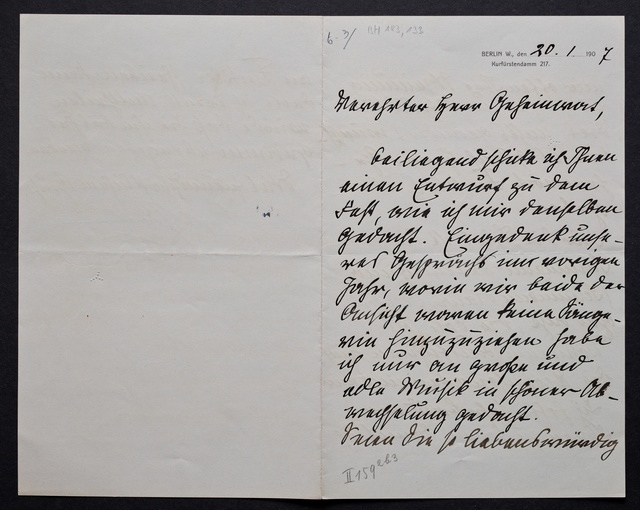 6.3/
BERLIN W., den 20.1.1907
Kurfürstendamm 217.
Verehrter Herr Geheimrat,
beiliegend schicke ich Ihnen
einen Entwurf zu dem
Fest, wie ich mir denselben
gedacht. Eingedenk unse-
res Gesprächs im vorigen
Jahr, worin wir beide der
Ansicht waren keine Sänge-
rin hinzuzuziehen habe
ich nur an große und
edle Musik in schöner Ab-
wechselung gedacht.
Seien Sie so liebenswürdig
II 159